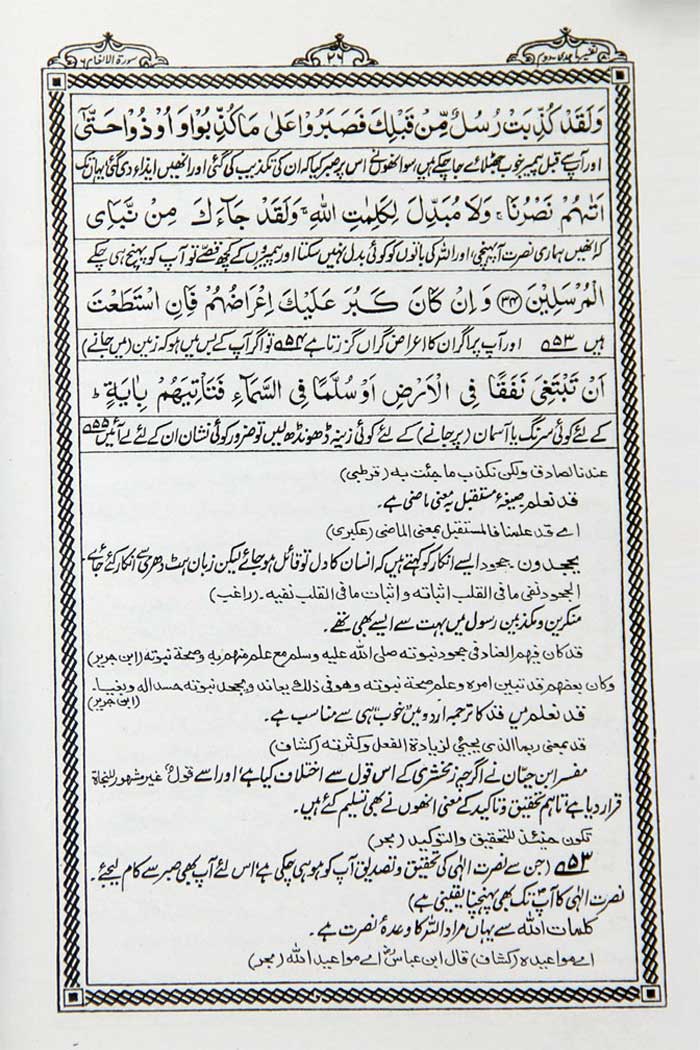 تفسیر ماجدی دوم
٢٦
سورة الانعام ٦
وَلَقَدْ كُذِّبَتْ رُسُلٌ مِّنْ قَبْلِكَ فَصَبَرُوْا عَلٰى مَا كُذِّبُوْا وَ اُوْذُوْا حَتّٰٓى
اور آپ سے قبل پیمبر خوب جھٹلائے جا چکے ہیں، سو انھوں نے اس پر صبر کیا کہ ان کی تکذیب کی گئی اور انھیں ایذا دی گئی یہاں تک
اَتٰىهُمْ نَصْرُنَا ۚ وَلَا مُبَدِّلَ لِكَلِمٰتِ اللّٰهِ ۚ وَلَقَدْ جَآءَكَ مِنْ نَّبَاِى
کہ انھیں ہماری نصرت آپہنچی، اور اللہ کی باتوں کو کوئی بدل نہیں سکتا اور پیمبروں کے کچھ قصّے تو آپ کو پہنچ ہی چکے
الْمُرْسَلِيْنَ ۝٣٤ وَ اِنْ كَانَ كَبُرَ عَلَيْكَ اِعْرَاضُهُمْ فَاِنِ اسْتَطَعْتَ
ہیں ٥٣؎ اور آپ پر اگر ان کا اعراض گراں گزرتا ہے ٥٤؎ تو اگر آپ کے بس میں ہو کہ زمین (میں جانے)
اَنْ تَبْتَغِىَ نَفَقًا فِى الْاَرْضِ اَوْ سُلَّمًا فِى السَّمَآءِ فَتَاْتِيَهُمْ بِاٰيَةٍ ؕ
کے لئے کوئی سرنگ یا آسمان (پر جانے) کے لئے کوئی زینہ ڈھونڈھ لیں تو ضرور کوئی نشان ان کے لئے لے آئیں ٥٥؎
عندنا لصادق ولكن نكذب ما جئت به (قرطبی)
قد نعلم۔ صیغۂ مستقبل بہ معنی ماضی ہے۔
اے قد علمنا فالمستقبل بمعنى الماضى (عکبری)
یجحدون۔ جحود ایسے انکار کو کہتے ہیں کہ انسان کا دل تو قائل ہو جائے لیکن زبان ہٹ دھرمی سے انکار کئے جائے۔
الجحود نفى ما فى القلب اثباته و اثبات ما فى القلب نفيه۔ (راغب)
منکرین و مکذبین رسول میں بہت سے ایسے بھی تھے۔
قد كان فيهم العناد فى جحود نبوته صلى الله عليه وسلم مع علم منهم به وصحة نبوته (ابن جریر)
وكان بعضهم قد تبين امره وعلم صحة نبوته وهو فى ذلك يعاند و يجحد نبوته حسدا له و بغيا۔ (ابن جریر)
قد نعلم میں قد کا ترجمہ اردو میں خوب ہی سے مناسب ہے۔
قد بمعنى ربما الذى يجيئ لزيادة الفعل وكثرته (کشاف)
مفسر ابن حیّان نے اگرچہ زمخشری کے اس قول سے اختلاف کیا ہے اور اسے قول غیر مشهور للنحاة
قرار دیا ہے، تاہم تحقیق و تاکید کے معنی انھوں نے بھی تسلیم کئے ہیں۔
تكون حينئذ للتحقيق والتوكيد (بحر)
٥٣؎ (جن سے نصرت الٰہی کی تحقیق و تصدیق آپ کو ہو ہی چکی ہے اس لئے آپ بھی صبر سے کام لیجئے۔
نصرت الٰہی کا آپؐ تک بھی پہنچنا یقینی ہے)
کلمات اللہ سے یہاں مراد اللہ کا وعدۂ نصرت ہے۔
اے مواعيده (کشاف) قال ابن عباسؓ اے مواعيد الله (بحر)